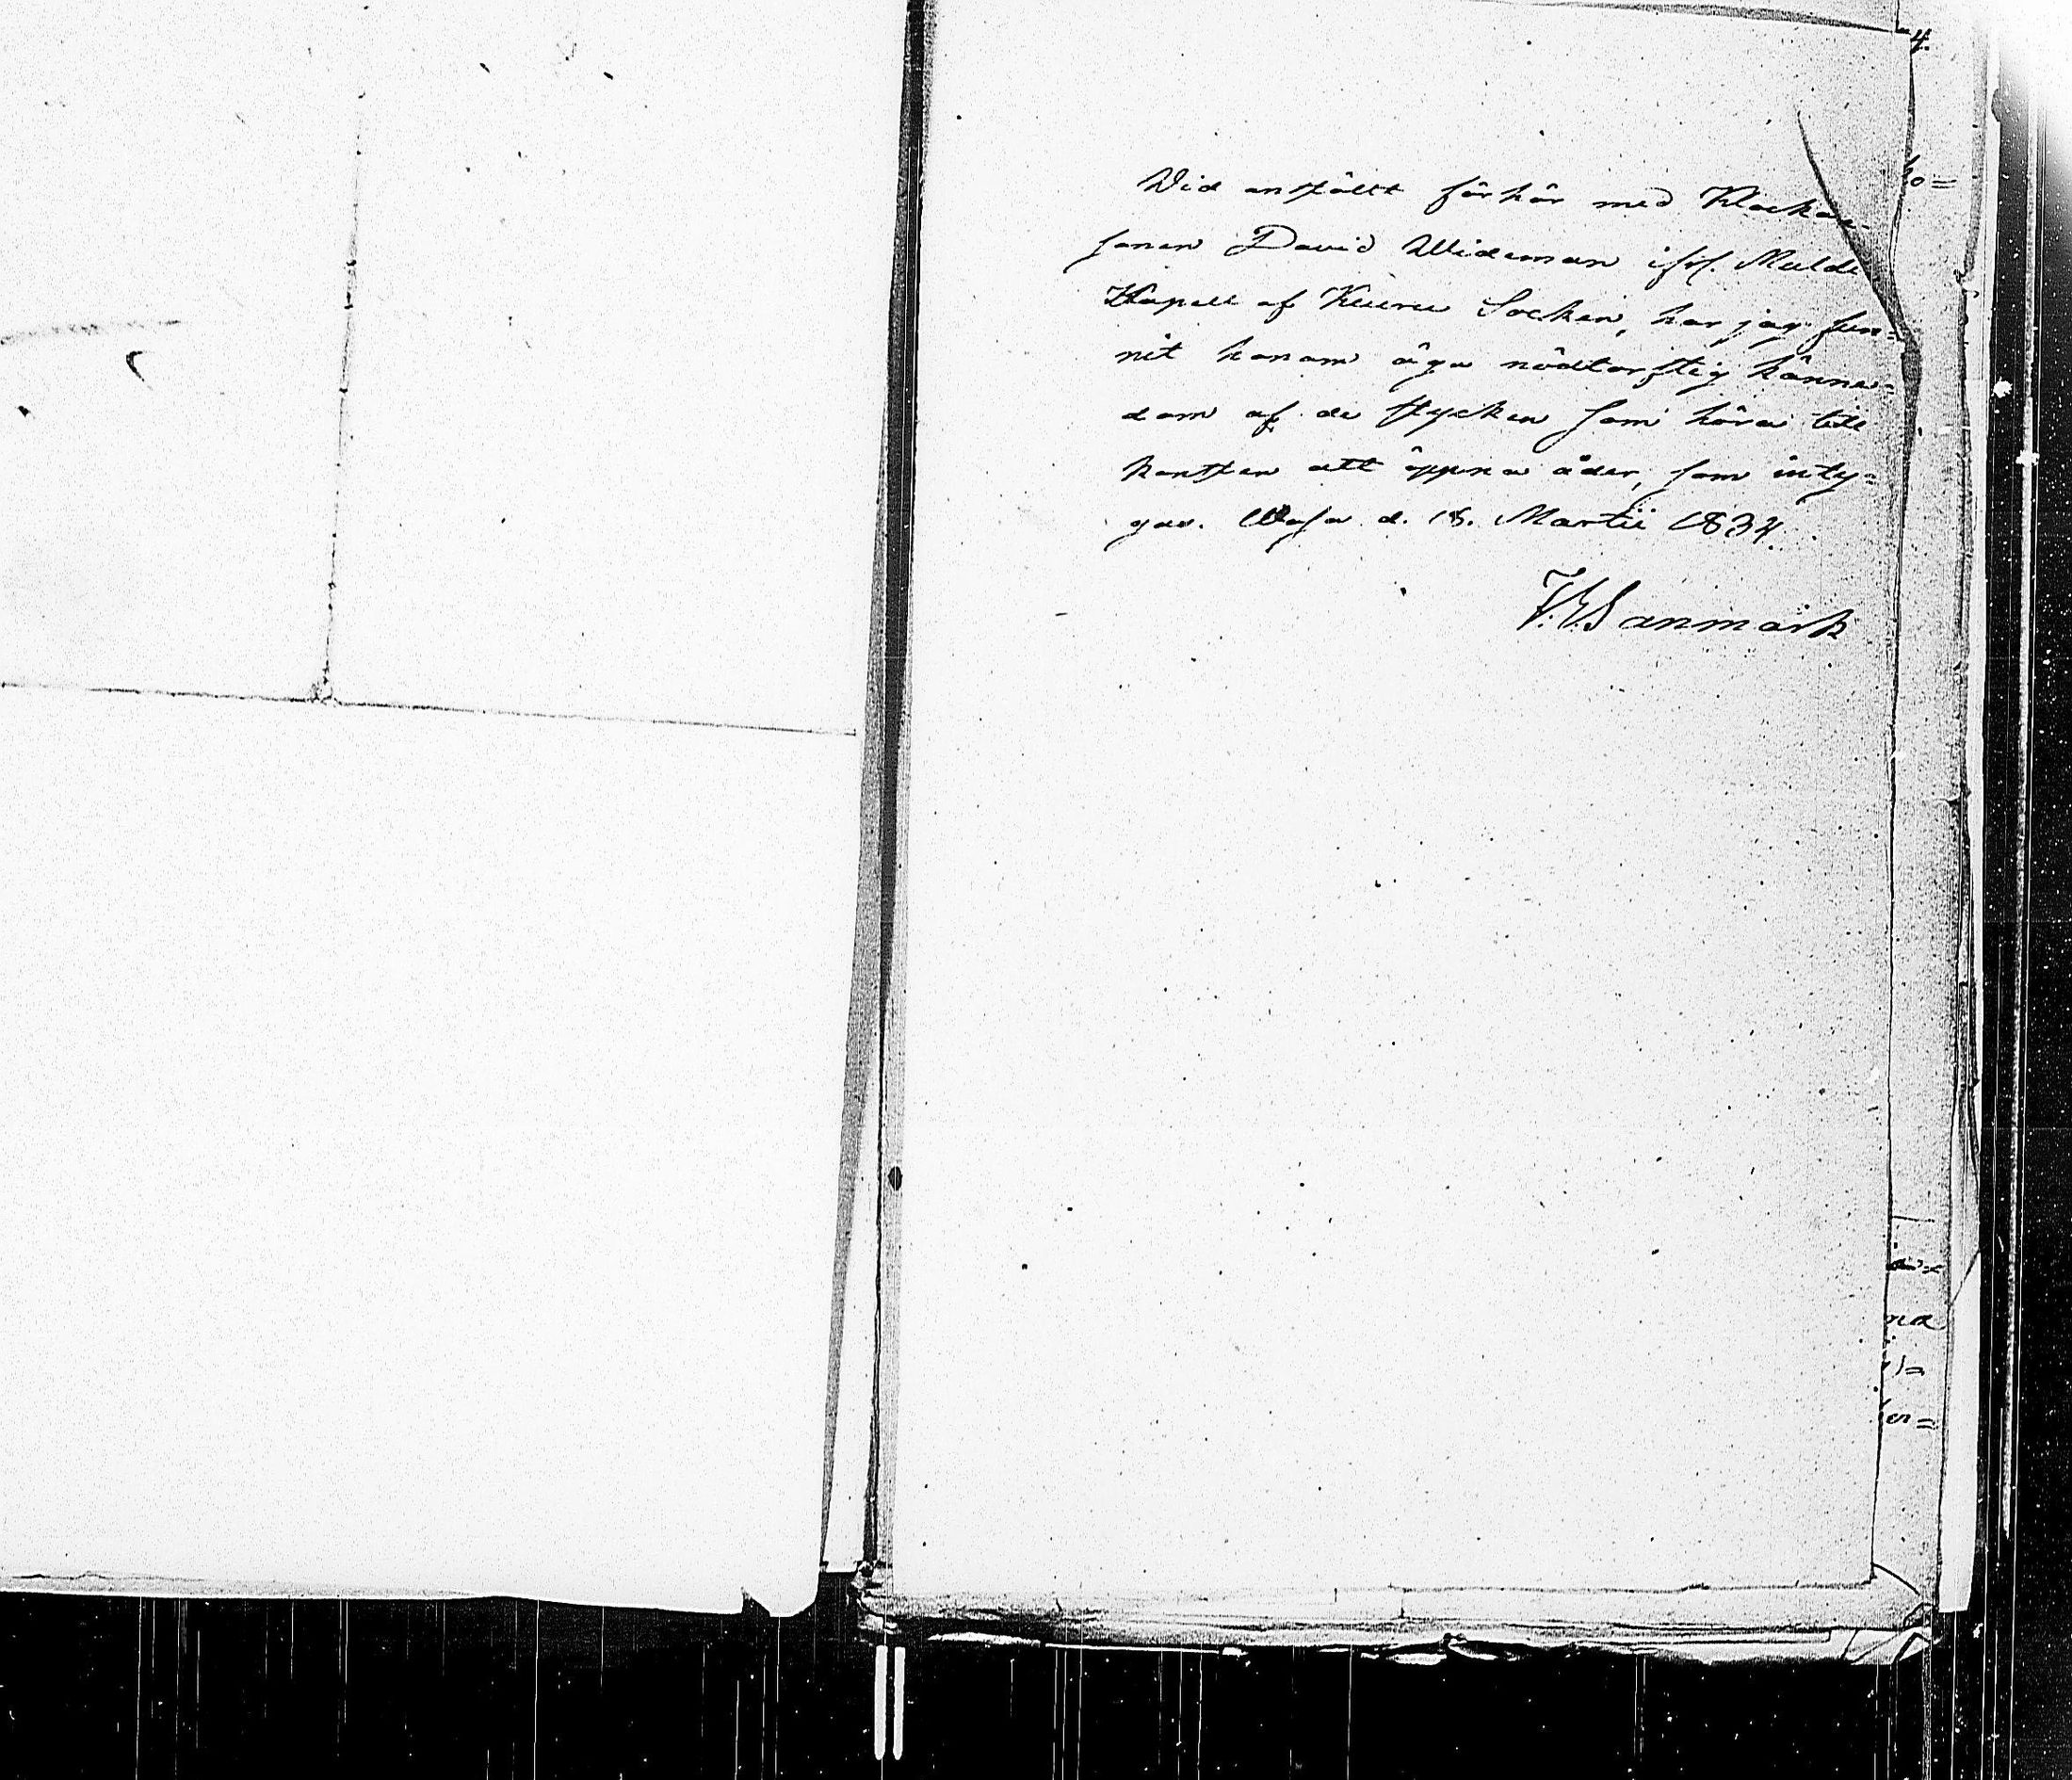 4.
Vid anställt förhör med Klockar-
sonen David Wideman ifrl. Multi
Kapell af Keuru Socken, har jag fun=
nit honom äga nödtorftig känne=
dom af de stycken som höra till
konsten att öppna åder, som inty=
gas. Wasa d. 18. Martii 1834.
V. E. Sanmark